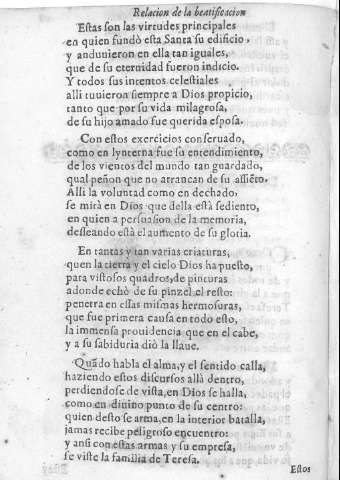 Relacion de la beatificacion
Estas son las virtudes principales
en quien fundò esta Santa su edificio,
y anduuieron en ella tan iguales,
que de su eternidad fueron indicio.
Y todos sus intentos celestiales
alli tuuieron siempre a Dios propicio,
tanto que por su vida milagrosa,
de su hijo amado fue querida esposa.
Con estos exercicios conseruado,
como en lynterna fue su entendimiento,
de los vientos del mundo tan guardado,
qual peñon que no arrancan de su assiẽto.
Alli la voluntad como en dechado,
se mira en Dios que della està sediento,
en quien a persuasion de la memoria,
desseando està el aumento de su gloria.
En tantas y tan varias criaturas,
quen la tierra y el cielo Dios ha puesto,
para vistosos quadros, de pinturas
adonde echò de su pinzel el resto:
penetra en essas mismas hermosuras,
que fue primera causa en todo esto,
la immensa prouidencia que en el cabe,
y a su sabiduria diò la llaue.
Quãdo habla el alma, y el sentido calla,
haziendo estos discursos allà dentro,
perdiendose de vista, en Dios se halla,
como en diuino punto de su centro:
quien desto se arma, en la interior batalla,
jamas recibe peligroso encuentro:
y ansi con estas armas y su empresa,
se viste la familia de Teresa.
Estos